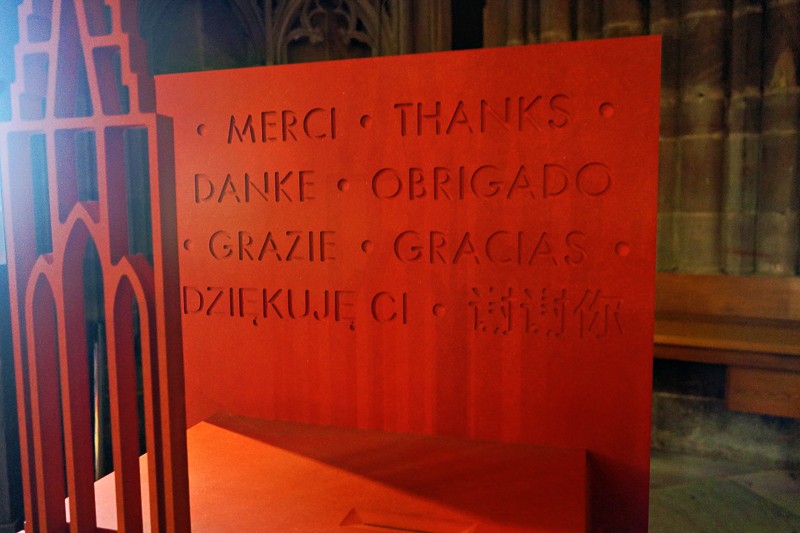 · MERCI · THANKS ·
DANKE · OBRIGADO
· GRAZIE · GRACIAS ·
DZIĘKUJĘ CI · 谢谢你